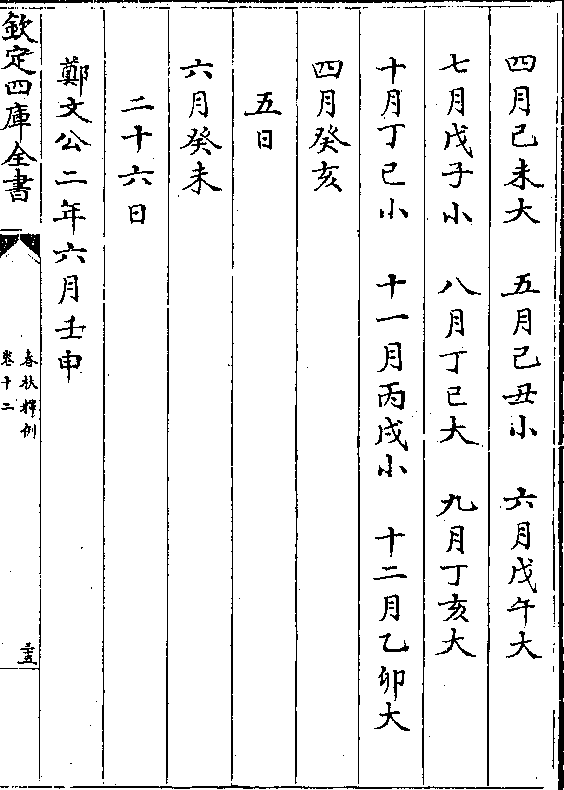 四月己未大　五月己丑小　六月戊午大
七月戊子小　八月丁巳大　九月丁亥大
十月丁巳小　十一月丙戌小　十二月乙卯大
四月癸亥
五日
六月癸未
二十六日
鄭文公二年六月壬申
欽定四庫全書
春秋釋例
卷十二
三五